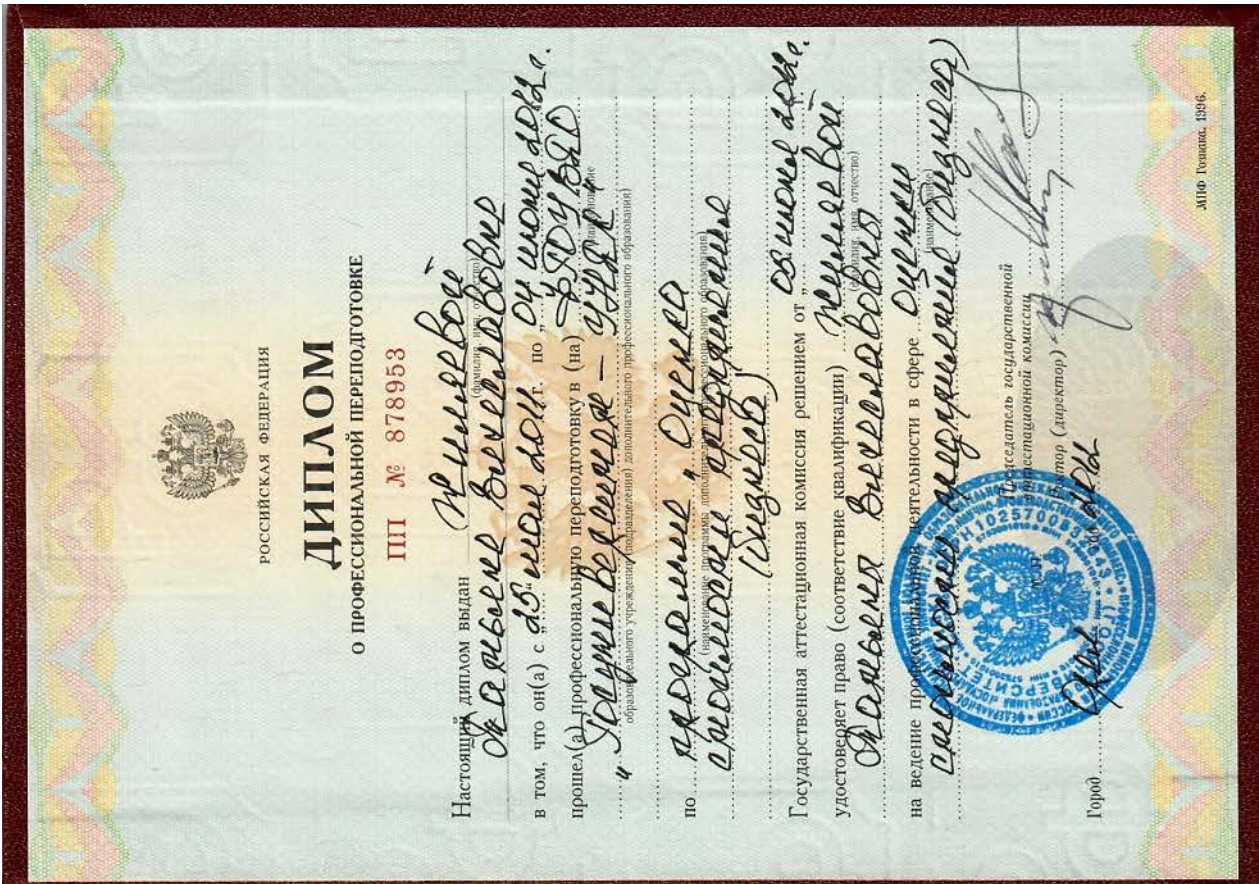 РОССИЙСКАЯ ФЕДЕРАЦИЯ
ДИПЛОМ
О ПРОФЕССИОНАЛЬНОЙ ПЕРЕПОДГОТОВКЕ
ПП № 878953
Настоящий диплом выдан
(фамилия, имя, отчество)
Татьяне Вячеславовне
в том, что он(а) с „25“ мая 2011 г. по „04 июня 2012 г.
прошел(а) профессиональную переподготовку в (на) ФГОУ ВПО
„Госуниверситет – УНПК“
образовательного учреждения (подразделения) дополнительного профессионального образования)
по программе „Оценка
(наименование программы дополнительного профессионального образования)
стоимости предприятия
(бизнеса)
Государственная аттестационная комиссия решением от „ 08 июня 2012 г.
удостоверяет право (соответствие квалификации)
(фамилия, имя, отчество)
Татьяны Вячеславовны
на ведение профессиональной деятельности в сфере оценки
(наименование)
стоимости предприятия (бизнеса)
Председатель государственной
аттестационной комиссии
Ректор (директор)
Город Орел 2012
МПФ Гознака. 1996.